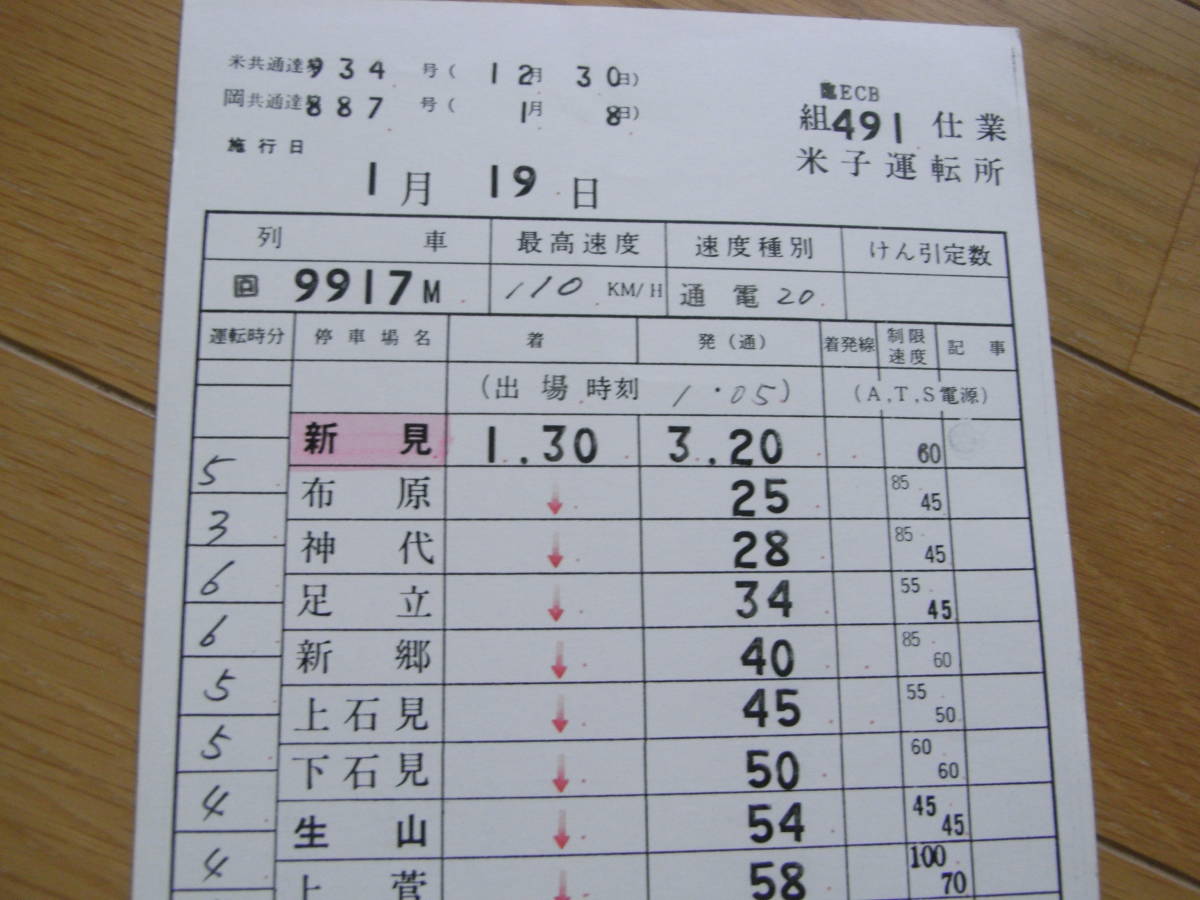 米共通達第934号(12月30日)
岡共通達第887号(1月8日)
施行日
1月19日
臨ECB
組491仕業
米子運転所
列車 最高速度 速度種別 けん引定数
回 9917M 110 KM/H 通電20
運転時分 停車場名 着 発(通) 着発線 制限速度 記事
(出場時刻 1・05) (A,T,S電源)
新見 1.30 3.20 60
5
布原 ↓ 25 85 45
3
神代 ↓ 28 85 45
6
足立 ↓ 34 55 45
6
新郷 ↓ 40 85 60
5
上石見 ↓ 45 55 50
5
下石見 ↓ 50 60 60
4
生山 ↓ 54 45 45
4
上菅 ↓ 58 100 70